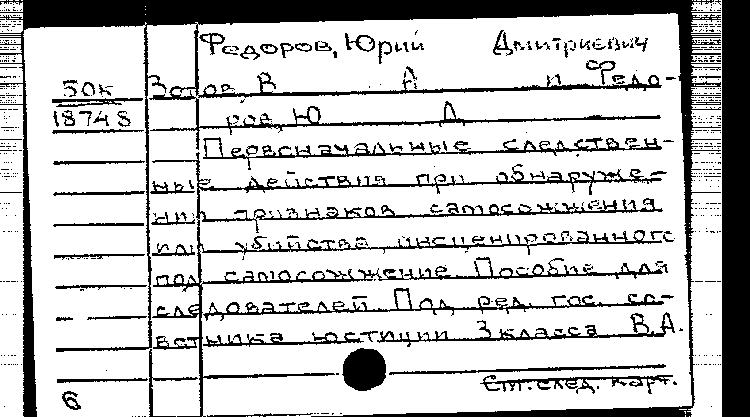 Федоров, Юрий Дмитриевич
50к Зотов, В А и Федо-
18748 ров, Ю Д
Первоначальные следствен-
ные действия при обнаруже-
нии признаков самосожжения
или убийства, инсценированного
под самосожжение. Пособие для
следователей. Под ред. гос. со-
ветника юстиции 3 класса В.А.
См. след. карт.
6